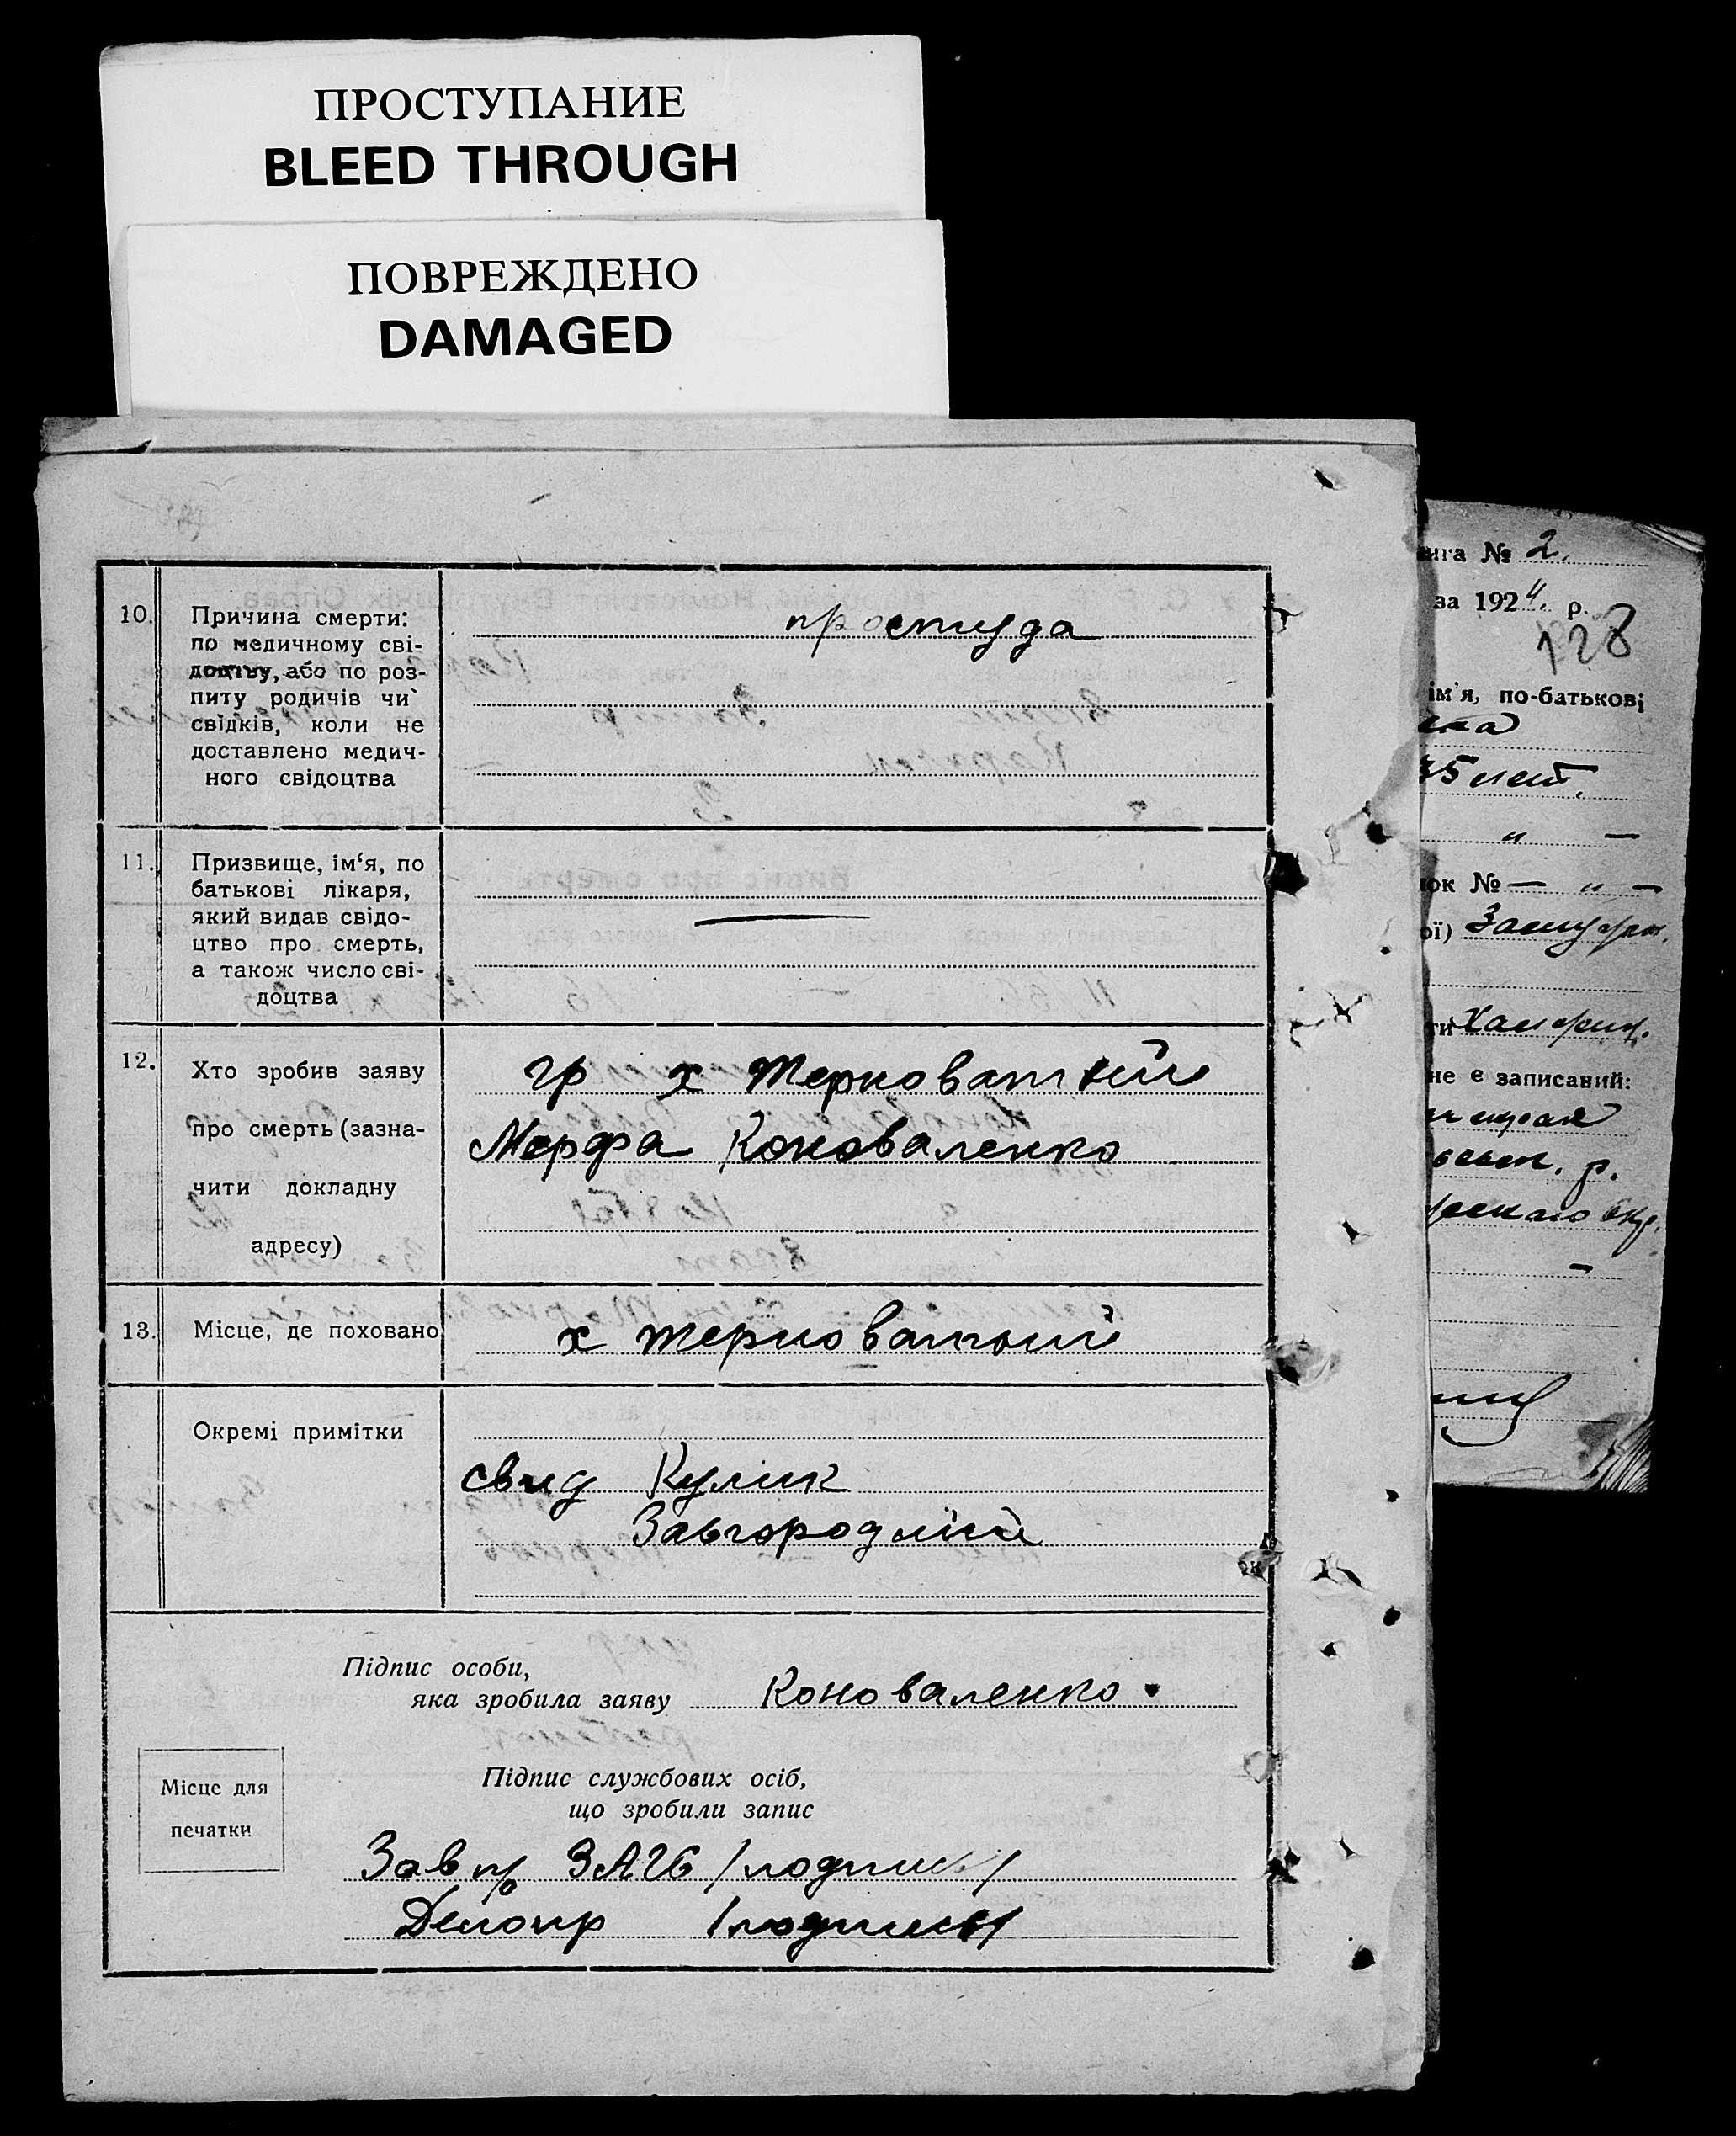 ПРОСТУПАНИЕ
BLEED THROUGH
ПОВРЕЖДЕНО
DAMAGED
10. Причина смерти:
по медичному сві-
доцтву, або по роз-
питу родичів чи
свідків, коли не
доставлено медич-
ного свідоцтва
простуда
11. Призвище, ім‘я, по
батькові лікаря,
який видав свідо-
цтво про смерть,
а також число сві-
доцтва
12. Хто зробив заяву
про смерть (зазна-
чити докладну
адресу)
гр х Терноватий
Марфа Коноваленко
13. Місце, де поховано
х терноватый
Окремі примітки
свид Кулик
Завгородний
Підпис особи,
яка зробила заяву Коноваленко
Місце для
печатки
Підпис службових осіб,
що зробили запис
Зав п/р ЗАГС /подпись/
Делопр /подпись/
нига № 2.
за 1924. р.
128
ім'я, по-батькові
35 лет.
„ —
ок № — „ —
ої)
ти
не є записаний:
р.
окр.
—